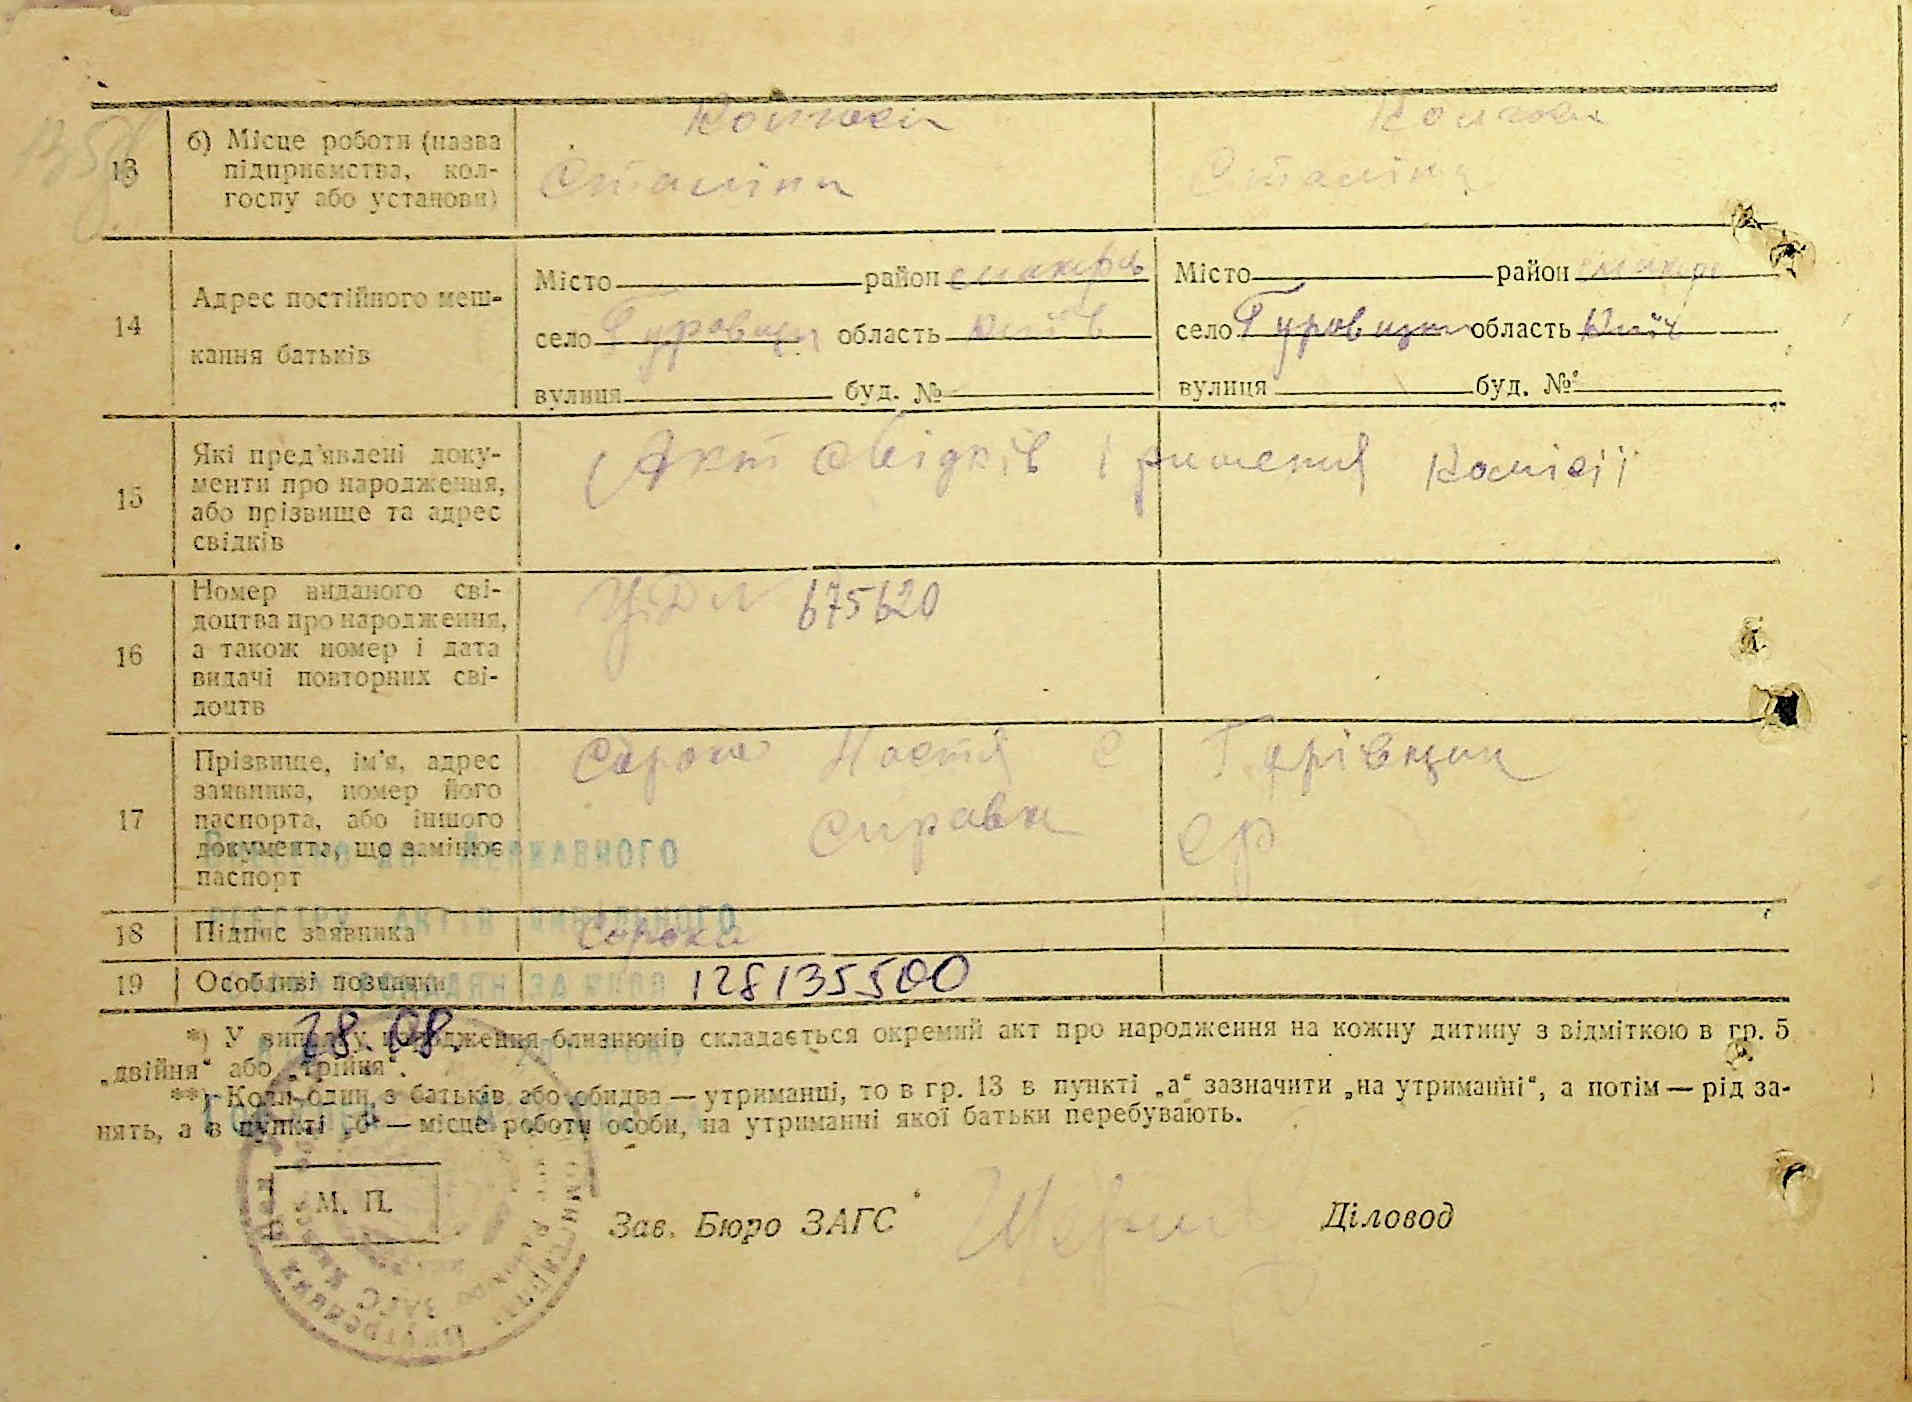 13
б) Місце роботи (назва
підприємства, кол-
госпу або установи)
Колгосп
Сталіна
Колгосп
Сталіна
14
Адрес постійного меш-
кання батьків
Місто район макарів
село Гуровщин область Київ
вулиця буд. №
Місто район макарів
село Гуровщин область Київ
вулиця буд. №
15
Які пред'явлені доку-
менти про народження,
або прізвище та адрес
свідків
Акт свідків і рішення комісії
16
Номер виданого сві-
доцтва про народження,
а також номер і дата
видачі повторних сві-
доцтв
675620
17
Прізвище, ім'я, адрес
заявника, номер його
паспорта, або іншого
документа, що замінює
паспорт
Сорока Настя с Гурівщин
справка ср
18
Підпис заявника
Сорока
19
Особливі позначки
128135500
28.08.
*) У випадку народження близнюків складається окремий акт про народження на кожну дитину з відміткою в гр. 5
„двійня“ або „трійня“.
**) Коли один з батьків або обидва — утриманці, то в гр. 13 в пункті „а“ зазначити „на утриманні“, а потім — рід за-
нять, а в пункті „б“ — місце роботи особи, на утриманні якої батьки перебувають.
М. П.
Зав. Бюро ЗАГС
Діловод